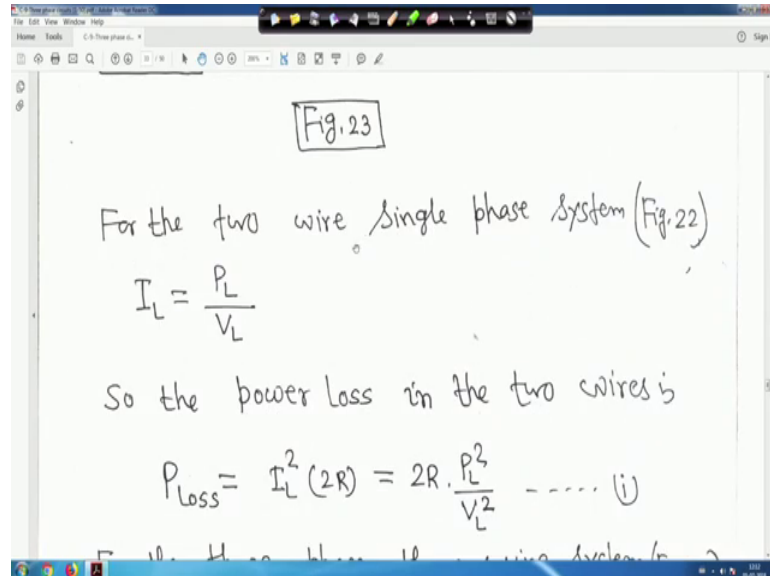 File Edit View Window Help
Home Tools
Sign
Fig. 23
For the two wire single phase system (Fig. 22),
I_L = P_L / V_L
So the power loss in the two wires is
P_Loss = I_L^2 (2R) = 2R . P_L^2 / V_L^2 ------ (i)